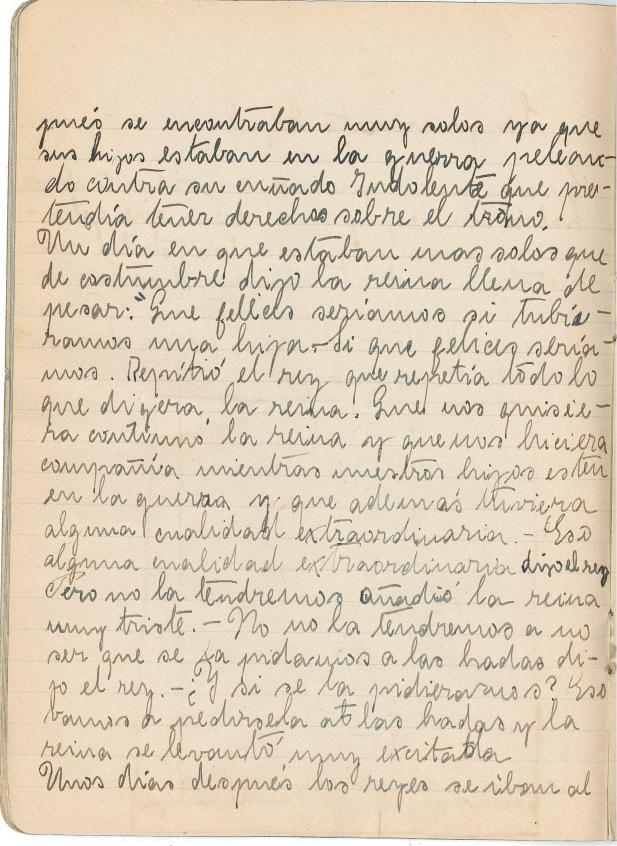 pués se encontraban muy solos ya que
sus hijos estaban en la guerra pelean-
do contra su cuñado Indolente que pre-
tendía tener derechos sobre el trono.
Un día en que estaban mas solos que
de costumbre dijo la reina llena de
pesar: "Que felices seriamos si tubie-
ramos una hija.- Si que felices seria-
mos. Repitió el rey que repetia todo lo
que dijera la reina. Que nos quisie-
ra continuó la reina y que nos hiciera
compañía mientras nuestros hijos esten
en la guerra y que además tuviera
alguna cualidad extraordinaria. - Eso
alguna cualidad extraordinaria dijo el rey
Pero no la tendremos añadió la reina
muy triste. - No no la tendremos a no
ser que se la pidamos a las hadas di-
jo el rey. - ¿Y si se la pidieramos? Eso
bamos a pedirsela a las hadas y la
reina se levantó muy excitada
Unos días después los reyes se iban al